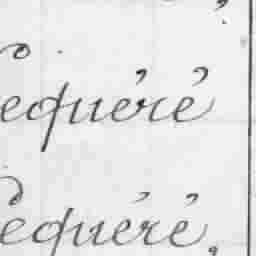 equéré
equéré.